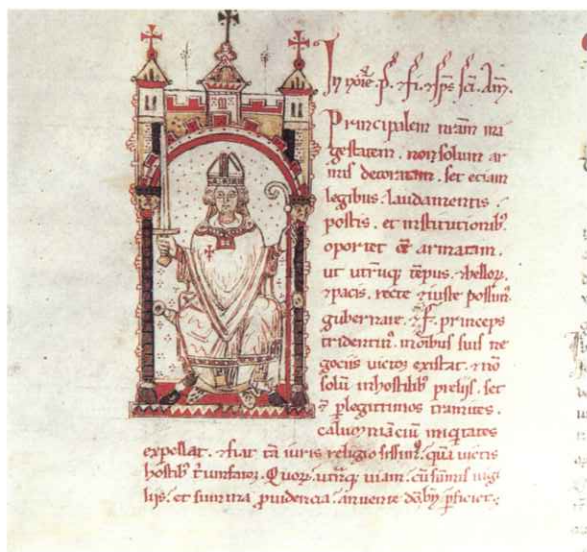 In noie. p. & fi. & sps sci. Am.
Principalem nram ma
gestatem. non solum ar
mis decoratam. set eciam
legibus. laudamentis.
postis. et institutionib'
oportet armatam.
ut utrūq tēpus. & bellor.
& pacis. recte & iuste possim'
gubernare. princeps
tridentin'. moibus suis ne
gociis victor existat. & nō
solū in hostilib' prelijs. set
& plegittimos tramites.
iniq'tates
expellat. & fiat tā iuris religiosissim'. quā victis
hostib' triumfator. Quor. utrūq viam. cū summis vigi
lijs. et summa. providencia. annuente. dō. pficiet.